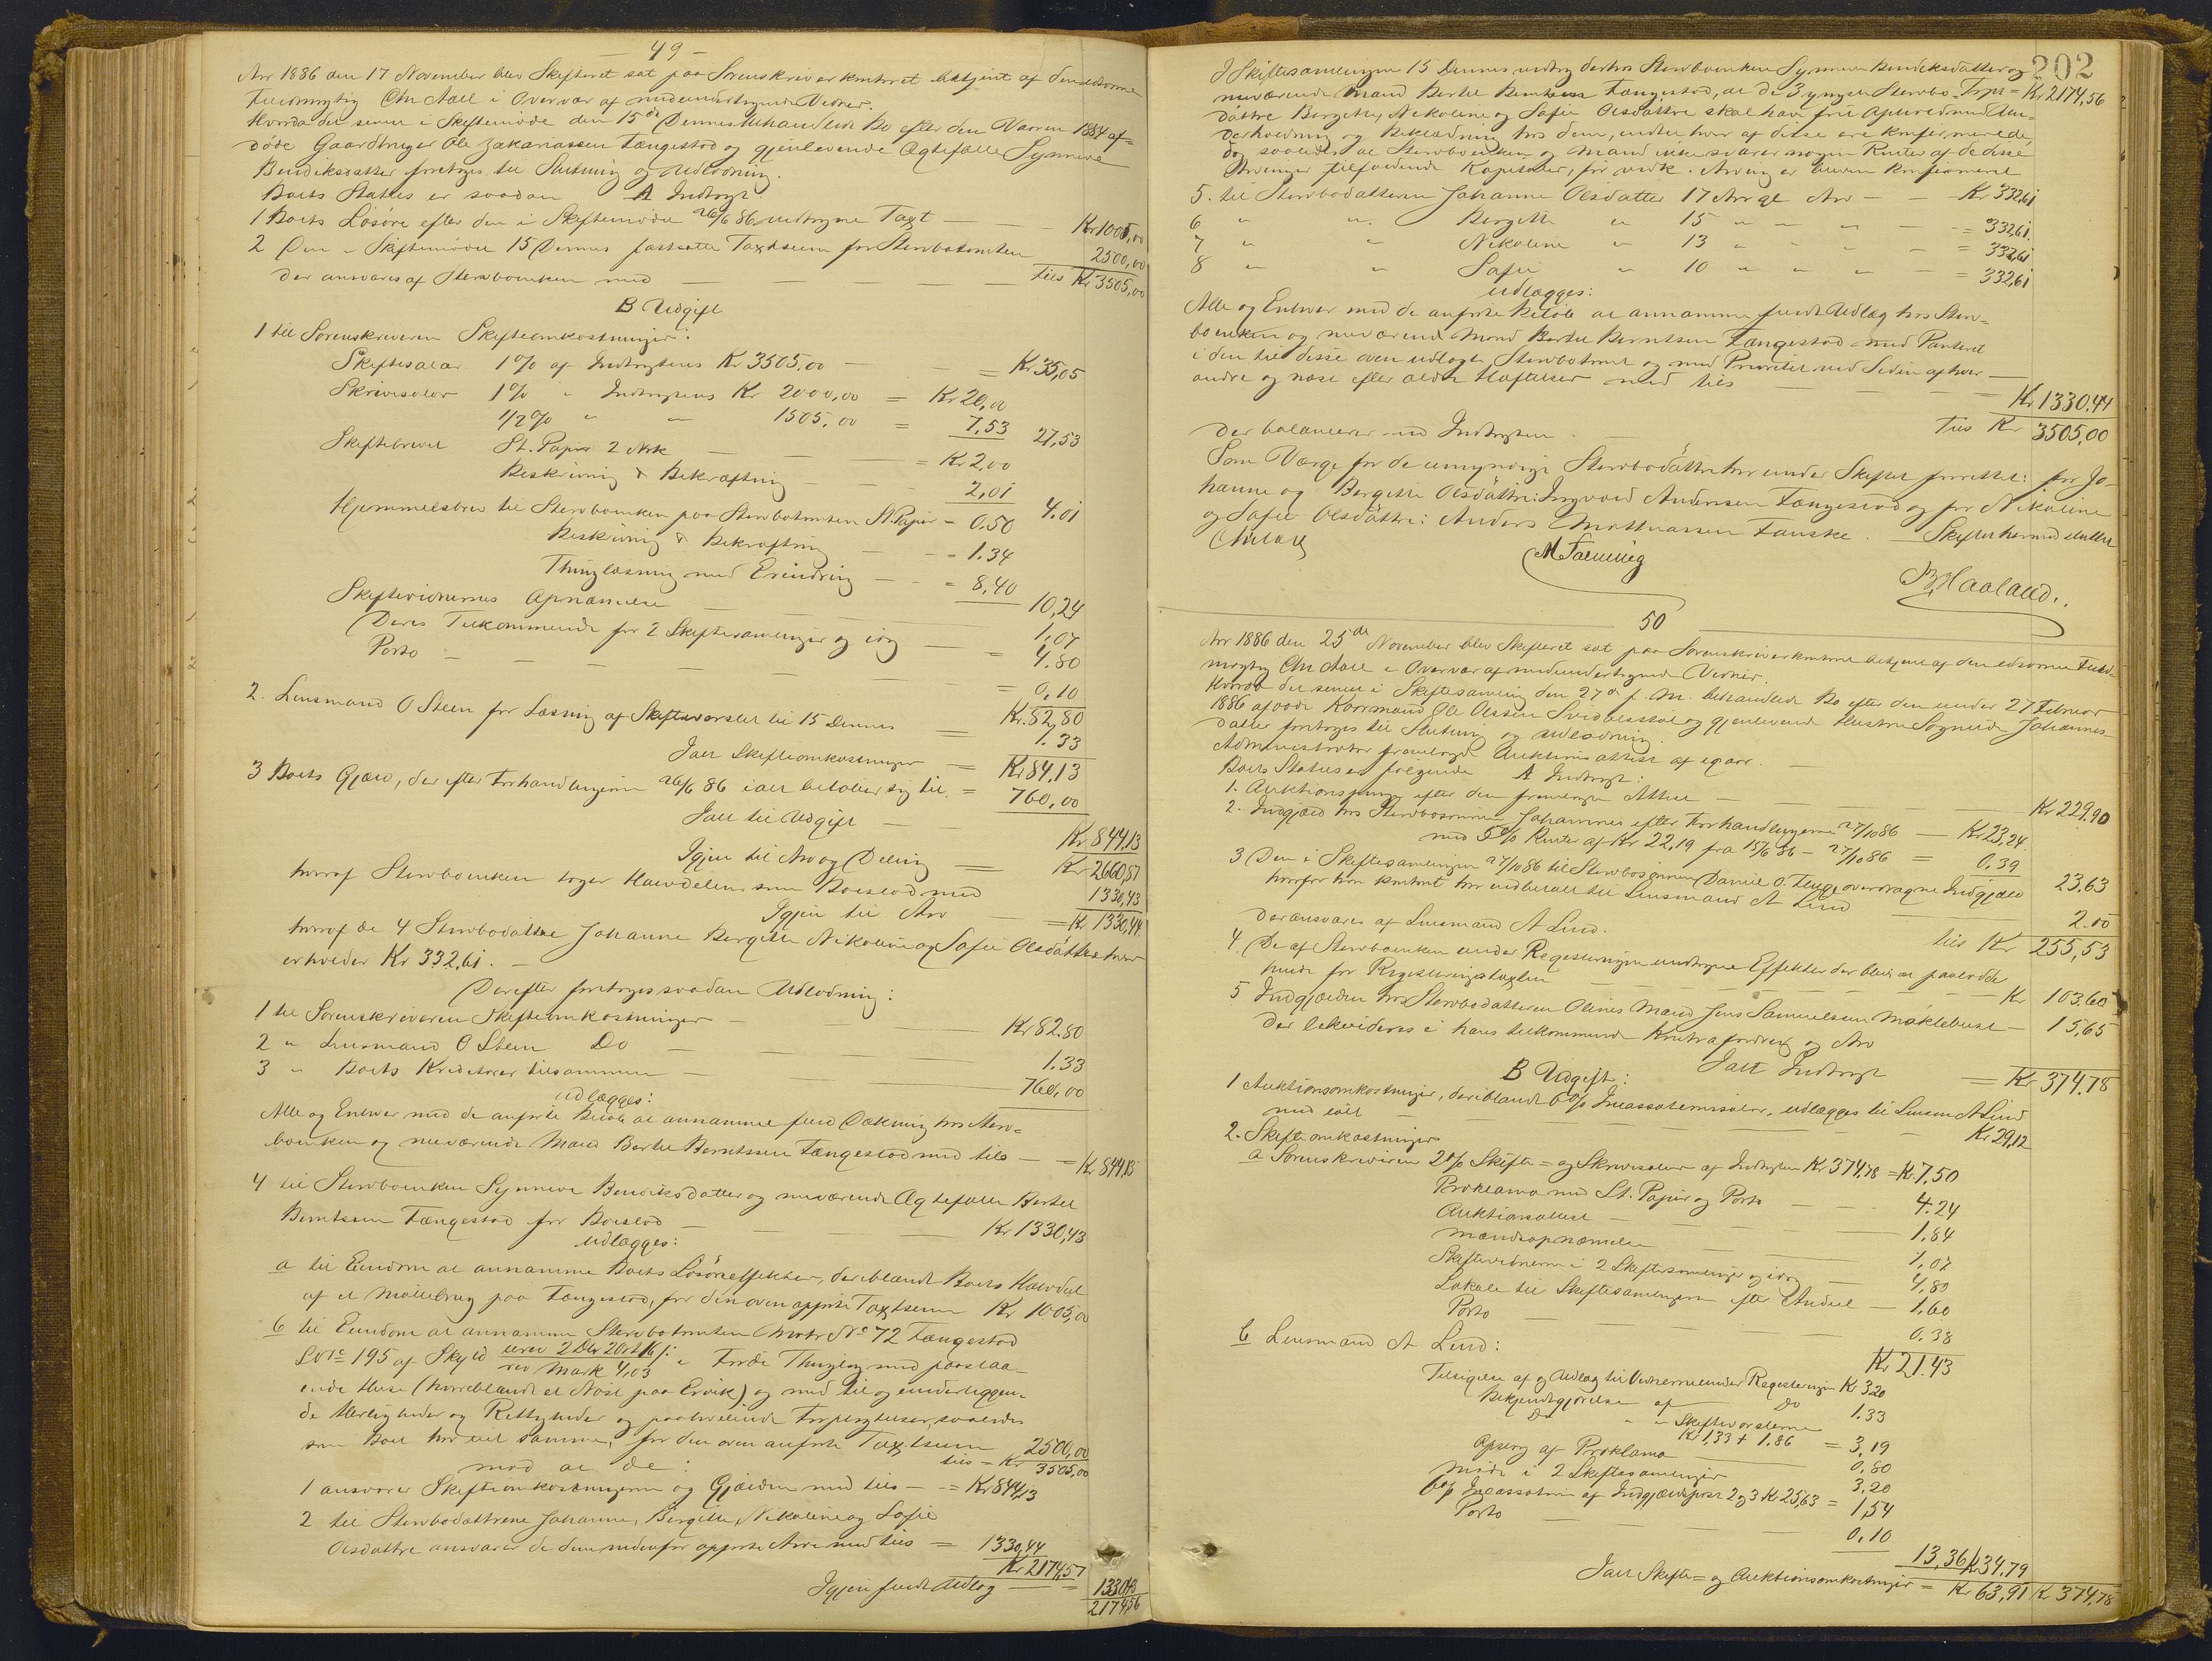 - 49 -
Aar 1886 den 17 November blev Skifteret sat paa Sorenskriverkontoret betjent af den edsvorne
Fuldmægtig Chr Aall i Overvær af medundertegnede Vidner.
Hvorda det senest i Skiftemøde den 15de Dennes behandlede Bo efter den Vaaren 1884 af-
døde Gaardbruger Ole Zakariassen Tængestad og gjenlevende Ægtefælle Synneve
Bendiksdatter foretoges til Slutning og Udlodning.
Boets Status er saadan A Indtægt:
1 Boets Løsøre efter den i Skiftemødet 26/6 86 undtagne Taxt — Kr 1005,00
2 Den i Skiftemødet 15 Dennes fastsatte Taxtsum for Stervbotomten 2500,00
der ansvares af Stervboenken med — tils Kr 3505,00
B Udgift
1 til Sorenskriveren Skifteomkostninger:
Skiftesalær 1 % af Indtægtens Kr 3505,00 — = Kr 35,05
Skriversalær 1 % " Indtægtens Kr 2000,00 = Kr 20,00
1/2 % " " 1505,00 = 7,53 27,53
Skiftebrevet St. Papir 2 Ark — = Kr 2,00
Beskrivning & Bekræftning — 2,01 4.01
Hjemmelsbrev til Stervboenken paa Stervbotomten St. Papir - 0.50
Beskrivning & Bekræftning — - 1.34
Thinglæsning med Erindring — = 8,40 10,24
Skiftevidnernes Opnævnelse — 1,07
Deres Tilkommende for 2 Skiftesamlinger og idag — = 4.80
Porto — = 0,10
Kr. 82,80
2. Lensmand O Steen for Læsning af Skiftevarslet til 15 Dennes = 1.33
Ialt Skifteomkostninger = Kr 84,13
3 Boets Gjæld, der efter Forhandlingerne 26/6 86 ialt beløber sig til = 760,00
Ialt til Udgift — Kr 844,13
Igjen til Arv og Deling = Kr 2660,87
hvoraf Stervboenken tager Halvdelen som Boeslod med 1330,43
Igjen til Arv — = Kr 1330,44
hvoraf de 4 Stervbodøttre Johanne Bergitte Nikoline og Sofie Olsdøttre hver
erholder Kr 332,61. —
Derefter foretoges saadan Udlodning:
1 til Sorenskriveren Skifteomkostninger — Kr 82.80
2 " Lensmand O Steen Do — 1.33
3 " Boets Kreditorer tilsammen — 760,00
udlægges:
Alle og Enhver med de anførte Beløb at annamme fuld Dækning hos Sterv=
boenken og nuværende Mand Bertel Berntsen Tængestad med tils — = Kr 844,13
4 til Stervboenken Synneve Bendiksdatter og nuværende Ægtefælle Bertel
Berntsen Tængestad for Boeslod — Kr 1330,43
udlægges:
a til Eiendom at annamme Boets Løsøreeffekter, deriblandt Boets Halvdel
af et Møllebrug paa Tængestad, for den oven opførte Taxtsum Kr 1005,00
b til Eiendom at annamme Stervbotomten Matr No 72 Tængestad
L No 195 af Skyld urev 2 Dlr 2 Ort 16 s: i Førde Thinglag med paastaa-
rev Mark 4,03
ende Huse (hvoriblandt et Nøst paa Ervik) og med til og underliggen-
de Herligheder og Rettigheder og paahvilende Forpligtelser, saaledes
som Boet har eiet samme, for den oven anførte Taxtsum 2500,00
tils = Kr 3505,00
mod at de:
1 ansvarer Skifteomkostningerne og Gjælden med tils — = Kr 844,13
2 til Stervbodøttrene Johanne, Bergitte, Nikoline og Sofie
Olsdøttre ansvarer de dem nedenfor opførte Arve med tils = 1330,44
Kr 2174,57
Igjen fuldt Udlæg — = 1330,43
2174,56
202
I Skiftesamlingen 15 Dennes vedtog derhos Stervboenken Synneve Bendiksdatter og
nuværende Mand Bertel Berntsen Tængestad, at de 3 yngste Stervbo- Trpt = Kr 2174,56
døttre Bergitte, Nikoline og Sofie Olsdøttre skal have frit Ophold med Un-
derholdning og Beklædning hos dem, indtil hver af disse ere konfirmerede,
dog saaledes at Stervboenken og Mand ikke svarer nogen Renter af de disse
Arvinger tilfaldende Kapitaler, før vedk. Arving er bleven konfirmeret
5. til Stervbodatteren Johanne Olsdatter 17 Aar gl Arv — Kr 332,61
6 " " Bergitte " 15 " " " = 332,61.
7 " " Nikoline " 13 " " " = 332,61
8 " " Sofie " 10 " " " = 332,61
udlægges:
Alle og Enhver med de anførte Beløb at annamme fuldt Udlæg hos Sterv=
boenken og nuværende Mand Bertel Berntsen Tængestad med Panteret
i den til disse oven udlagte Stervbotomt og med Prioritet ved Siden af hver-
andre og næst efter ældre Hæftelser med tils — Kr 1330.44
der balancerer med Indtægten. Tils Kr 3505,00
Som Værge for de umyndige Stervbodøttre har under Skiftet fremmødt: for Jo-
hanne og Bergitte Olsdøttre: Ingvald Andersen Tængestad og for Nikoline
og Sofie Olsdøttre: Anders Mathiassen Fauske. Skiftet hermed sluttet
Chr Aall
M Fanning
B. Haaland.
50
Aar 1886 den 25de November blev Skifteret sat paa Sorenskriverkontoret betjent af den edsvorne Fuld-
mægtig Chr Aall i Overvær af medundertegnede Vidner.
Hvorda det senest i Skiftesamling den 27de f. M. behandlede Bo efter den under 27 Februar
1886 afdøde Kaarmand Ole Olsen og gjenlevende Hustru Sognelde Johannes-
datter foretoges til Slutning og Udlodning.
Administrator fremlagde Auktionsattest af igaar. —
Boets Status er følgende A Indtægt:
1. Auktionspenge efter den fremlagte Attest — Kr 229.90
2. Indgjæld hos Stervbosønnen Johannes efter Forhandlingerne 27/10 86 — Kr 23,24.
med 5 % Renter af Kr 22,19 fra 15/6 86 - 27/10 86 = 0,39 23.63
3 Den i Skiftesamlingen 27/10 86 til Stervbosønnen Daniel O. overdragne Indgjæld
hvorfor han kontant har indbetalt til Lensmand A Lind — 2.00
der ansvares af Lensmand A Lind. tils Kr 255,53
4 De af Stervboenken under Registreringen undtagne Effekter der blev at paalodde
hende for Registreringstaxten — Kr 103.60
5 Indgjælden hos Stervbodatteren Olines Mand Jens Samuelsen Møklebust — 15,65
der likvideres i hans tilkommende Kontrafordring og Arv
Ialt Indtægt = Kr 374.78
B Udgift:
1 Auktionsomkostninger, deriblandt 6 % Incassationssalær, udlægges til Lensm A Lind
med ialt — Kr 29,12
2. Skifteomkostninger
a Sorenskriveren 2 % Skifte= og Skriversalær af Indtægten Kr 374,78 = Kr. 7,50
Proklama med St. Papir og Porto — 4.24
Auktionsattest — 1,84
Mændsopnævnelse — 1,07
Skiftevidnerne i 2 Skiftesamlinger og idag — 4,80
Lokale til Skiftesamlingerne efter Andel — 1,60
Porto — 0.38
Kr 21.43
b Lensmand A Lind:
Tilsigelse af og Udlæg til Vidnerne under Registreringen Kr 3.20
Bekjendtgjørelse af Do 1.33
Do " " Skiftevarslerne
Kr 1,33 + 1.86 = 3,19
Opslag af Proklama — 0,80
Møde i 2 Skiftesamlinger 3,20
6 % Incassation af Indgjældspost 2 og 3 Kr 25,63 = 1,54
Porto — 0,10
13,36 Kr 34.79
Ialt Skifte= og Auktionsomkostninger = Kr 63,91 Kr 374,78